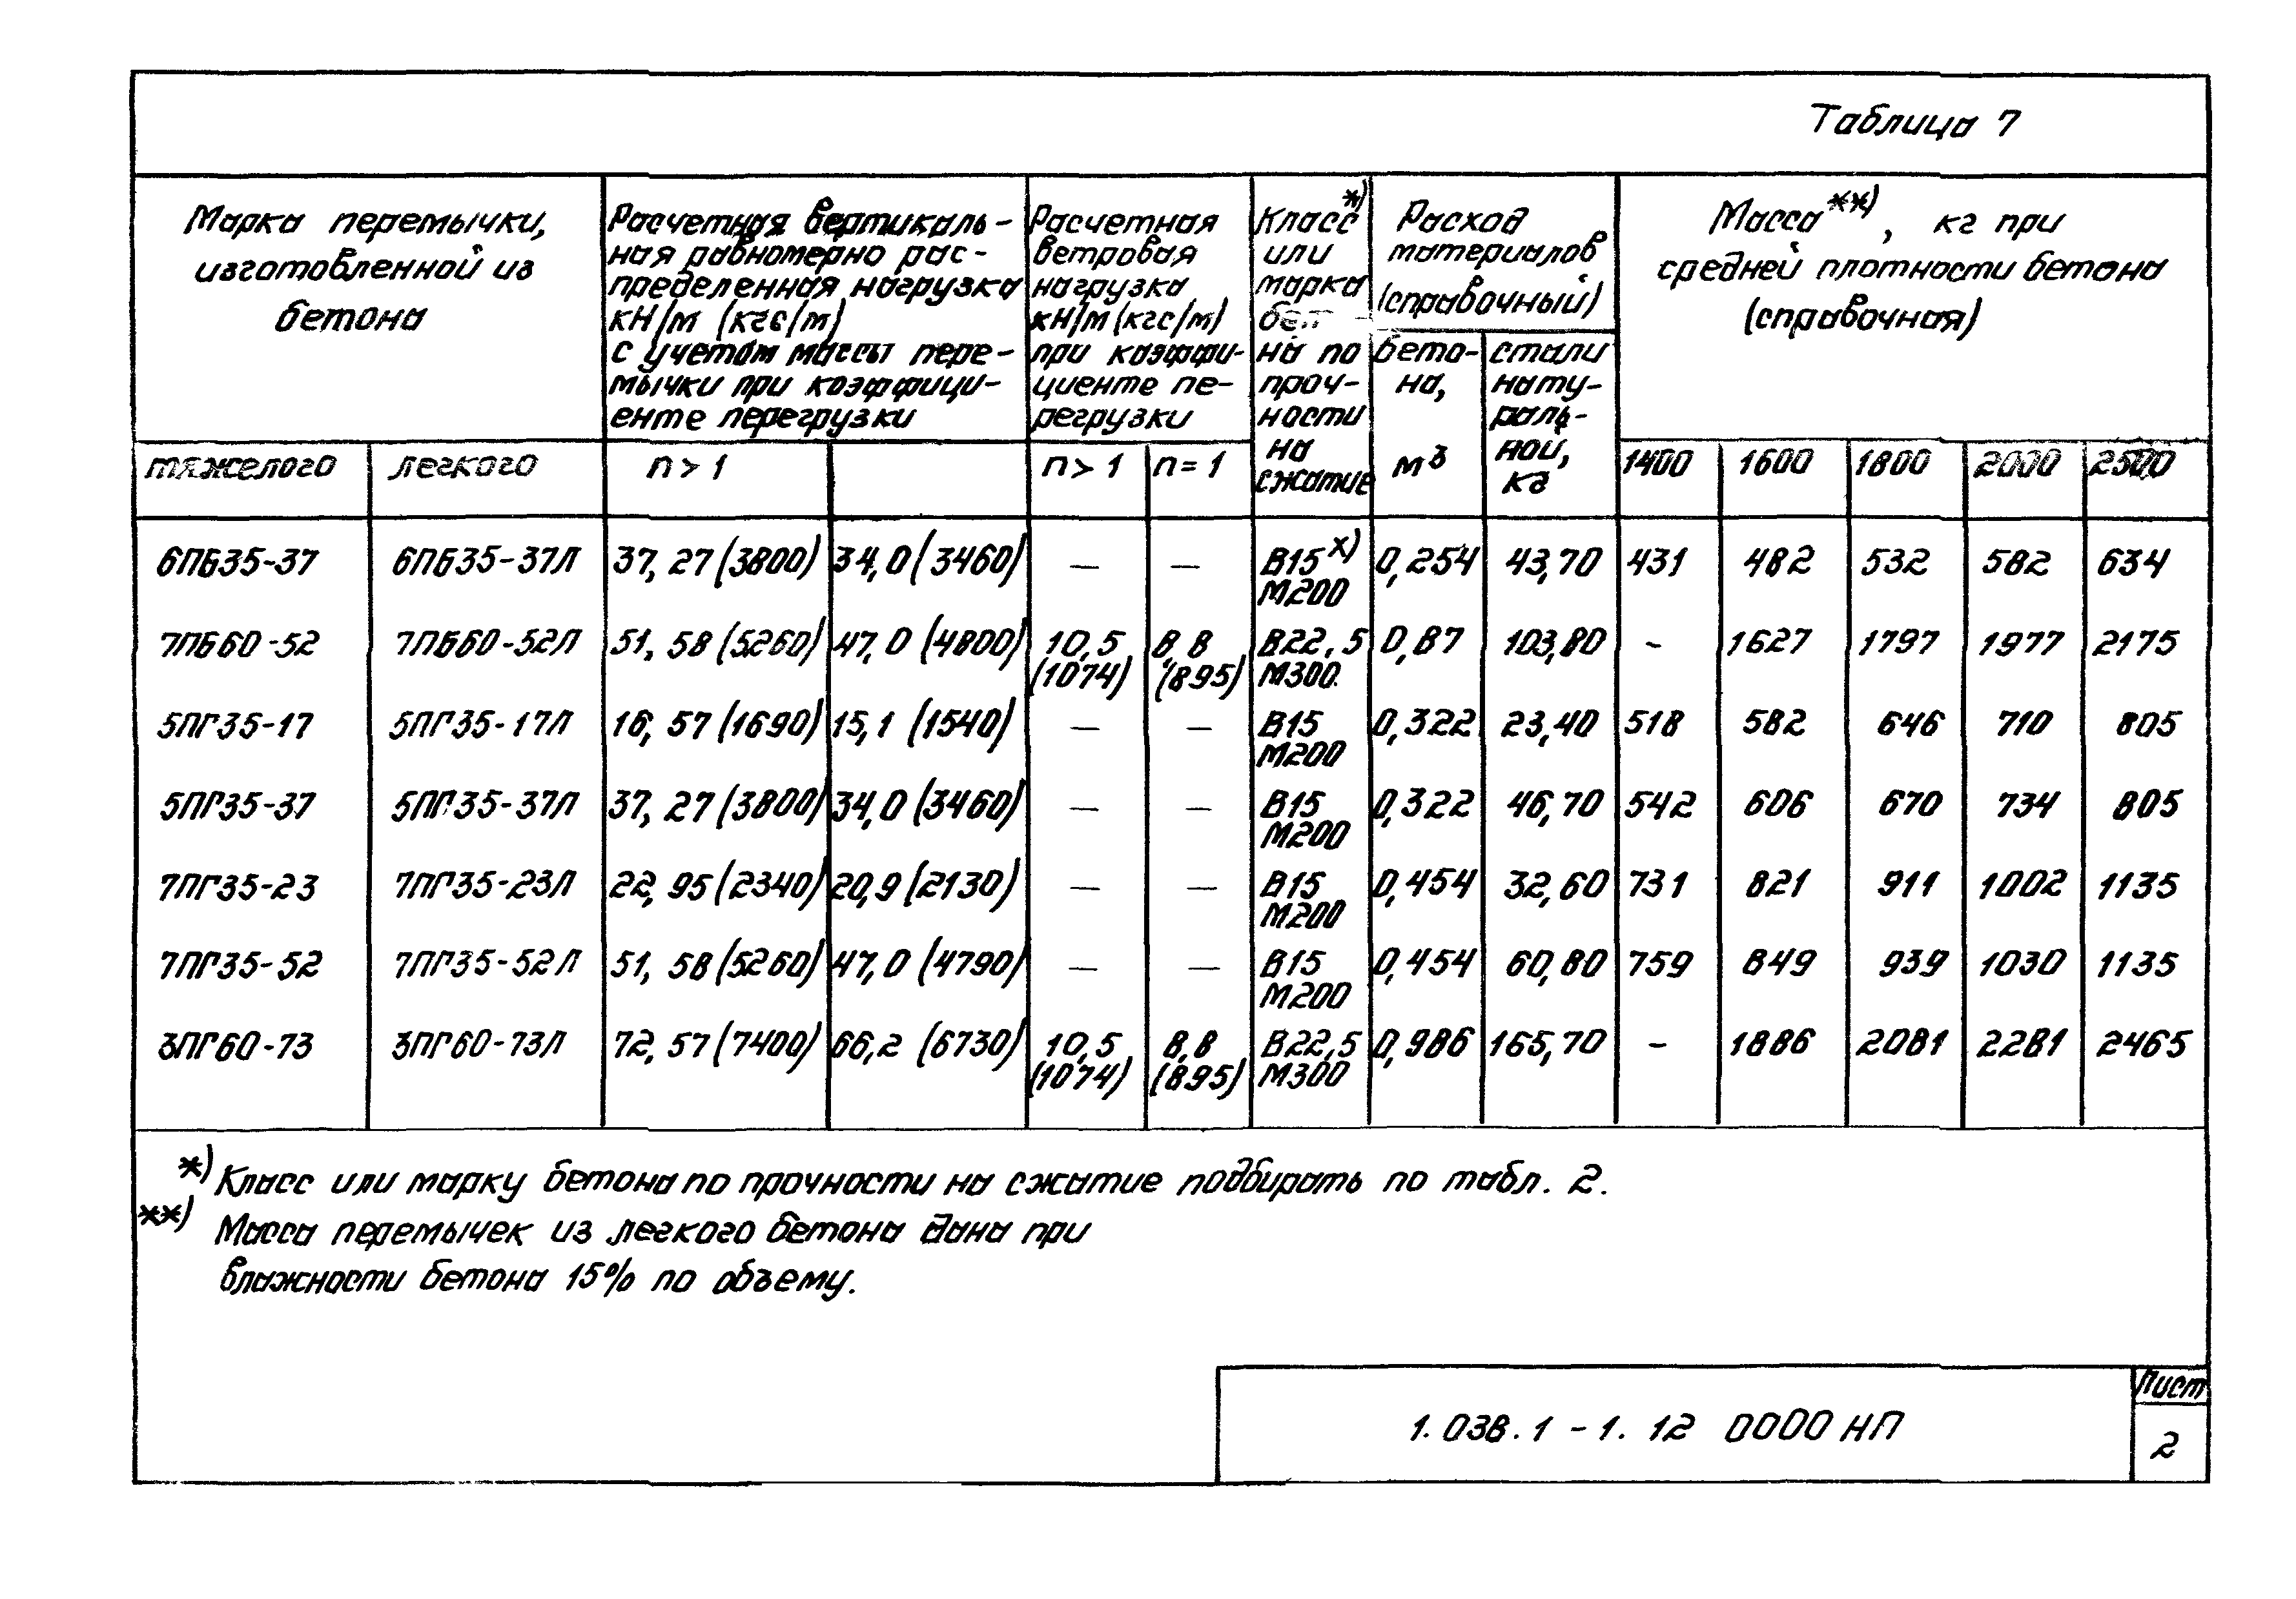 Таблица 7
Марка перемычки,
изготовленной из
бетона
Расчетная вертикаль-
ная равномерно рас-
пределенная нагрузка
кН/м (кгс/м)
с учетом массы пере-
мычки при коэффици-
енте перегрузки
Расчетная
ветровая
нагрузка
кН/м (кгс/м)
при коэффи-
циенте пе-
регрузки
Класс*)
или
марка
бет
на по
проч-
ности
на
сжатие
Расход
материалов
(справочный)
бето-
на,
м³
стали
нату-
раль-
ной,
кг
Масса**), кг при
средней плотности бетона
(справочная)
тяжелого легкого n > 1 n > 1 n = 1 1400 1600 1800 2000 2500
6ПБ35-37 6ПБ35-37Л 37,27 (3800) 34,0 (3460) — — В15 х) 0,254 43,70 431 482 532 582 634
М200
7ПБ60-52 7ПБ60-52Л 51,58 (5260) 47,0 (4800) 10,5 8,8 В22,5 0,87 103,80 - 1627 1797 1977 2175
(1074) (895) М300
5ПГ35-17 5ПГ35-17Л 16,57 (1690) 15,1 (1540) — — В15 0,322 23,40 518 582 646 710 805
М200
5ПГ35-37 5ПГ35-37Л 37,27 (3800) 34,0 (3460) — — В15 0,322 46,70 542 606 670 734 805
М200
7ПГ35-23 7ПГ35-23Л 22,95 (2340) 20,9 (2130) — — В15 0,454 32,60 731 821 911 1002 1135
М200
7ПГ35-52 7ПГ35-52Л 51,58 (5260) 47,0 (4790) — — В15 0,454 60,80 759 849 939 1030 1135
М200
3ПГ60-73 3ПГ60-73Л 72,57 (7400) 66,2 (6730) 10,5 8,8 В22,5 0,986 165,70 - 1886 2081 2281 2465
(1074) (895) М300
*) Класс или марку бетона по прочности на сжатие подбирать по табл. 2.
**) Масса перемычек из легкого бетона дана при
влажности бетона 15% по объему.
1.038.1-1.12 0000 НП
Лист
2